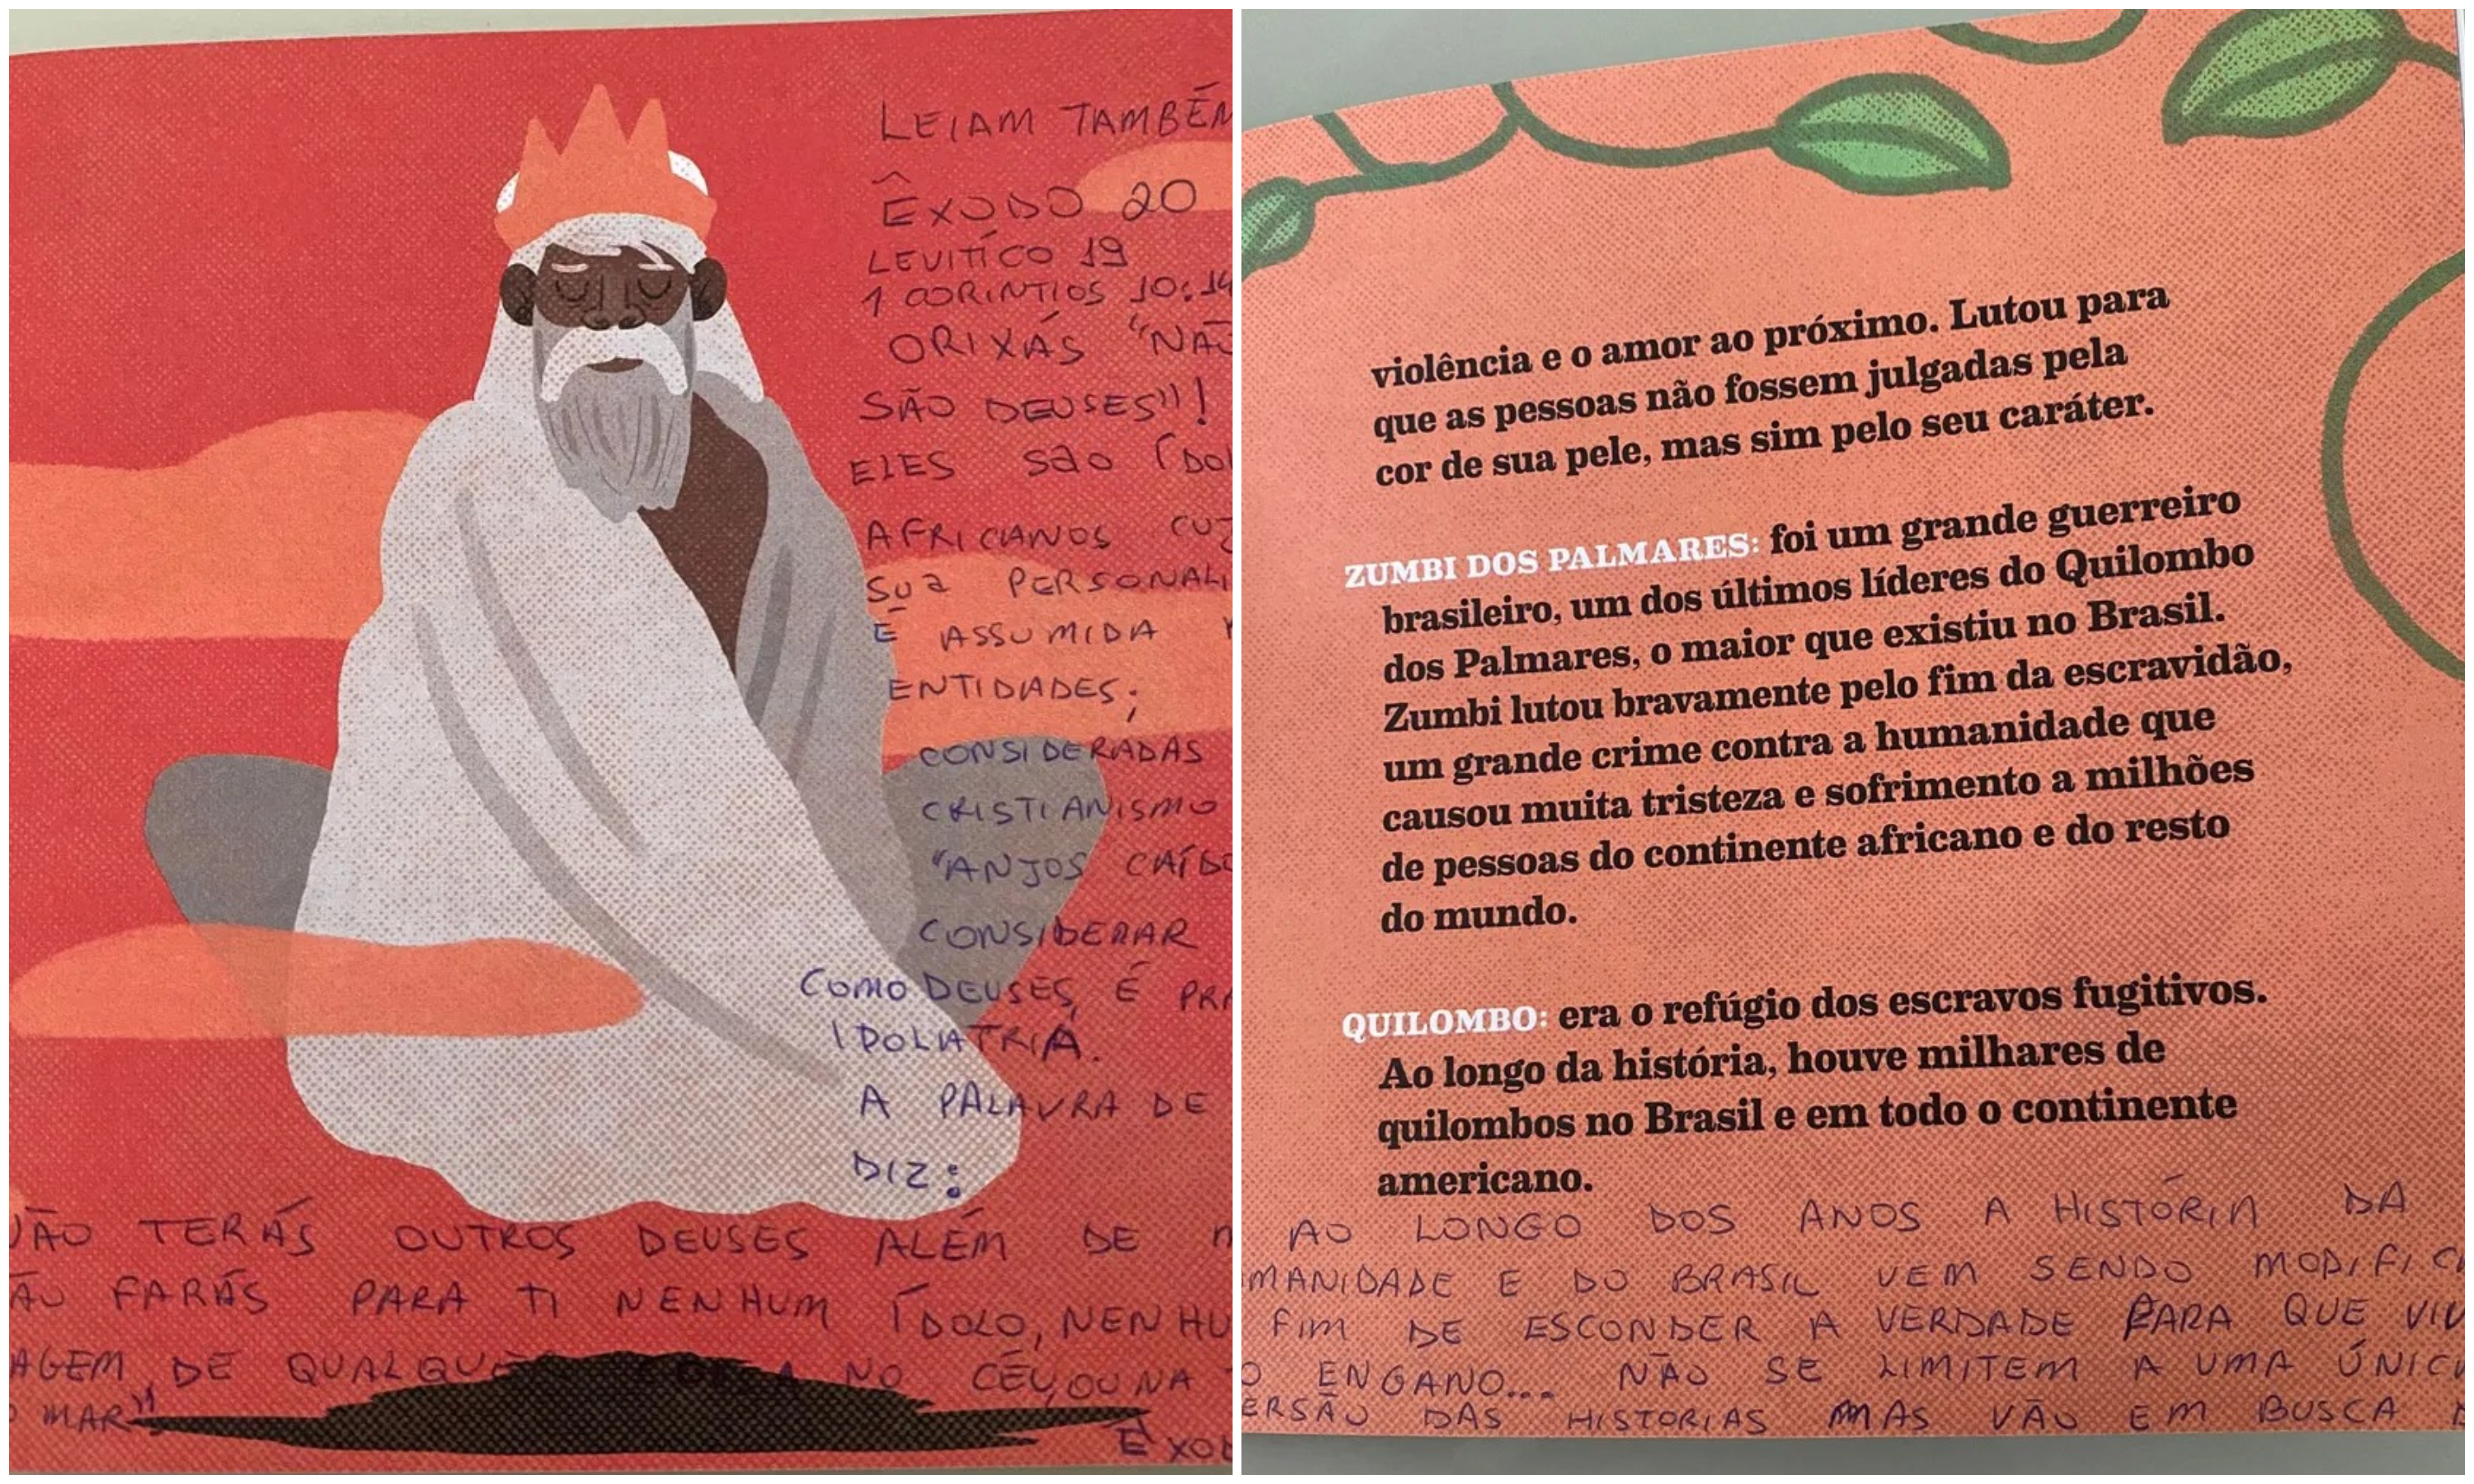 LEIAM TAMBÉM
ÊXODO 20
LEVITÍCO 19
1 CORINTIOS 10:14
ORIXÁS "NÃO
SÃO DEUSES"!
ELES são ÍDOL
AFRICANOS CUJ
sua PERSONALI
É ASSUMIDA
ENTIDADES;
CONSIDERADAS
CRISTIANISMO
"ANJOS CAÍDO
CONSIDERAR
COMO DEUSES, É PRA
IDOLATRIA.
A PALAVRA DE
DIZ:
NÃO TERÁS OUTROS DEUSES ALÉM DE
ÃO FARÁS PARA TI NENHUM ÍDOLO, NENHU
AGEM DE QUALQUER NO CÉU, OU NA
O MAR"
ÊXOD
violência e o amor ao próximo. Lutou para
que as pessoas não fossem julgadas pela
cor de sua pele, mas sim pelo seu caráter.
ZUMBI DOS PALMARES: foi um grande guerreiro
brasileiro, um dos últimos líderes do Quilombo
dos Palmares, o maior que existiu no Brasil.
Zumbi lutou bravamente pelo fim da escravidão,
um grande crime contra a humanidade que
causou muita tristeza e sofrimento a milhões
de pessoas do continente africano e do resto
do mundo.
QUILOMBO: era o refúgio dos escravos fugitivos.
Ao longo da história, houve milhares de
quilombos no Brasil e em todo o continente
americano.
AO LONGO DOS ANOS A HISTÓRIA DA
MANIDADE E DO BRASIL VEM SENDO MODIFIC
FIM DE ESCONDER A VERDADE PARA QUE VIV
O ENGANO... NÃO SE LIMITEM A UMA ÚNIC
ERSÃO DAS HISTORIAS MAS VÃO EM BUSCA D